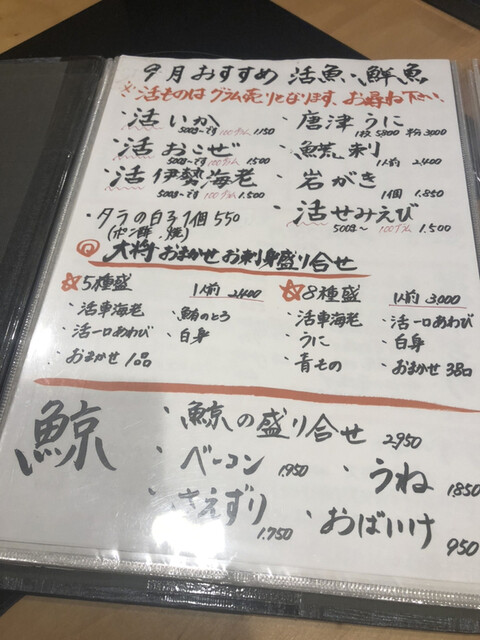 9月おすすめ 活魚、鮮魚
※活ものはグラム売りとなります、お尋ね下さい。
・活いか
500g〜です 100グラム 1,150
・唐津うに
1枚 5,800 ハーフ 3,000
・活おこぜ
500g〜です 100グラム 1,500
・魚荒刺
1人前 2,400
・活伊勢海老
500g〜です 100グラム 1,500
・岩がき
1個 1,850
・タラの白子1個 550
(ポン酢・焼)
・活せみえび
500g〜 100グラム 1,500
大将おまかせお刺身盛り合せ
☆5種盛 1人前 2,400
・活車海老 ・鮪のとろ
・活一口あわび ・白身
・おまかせ1品
☆8種盛 1人前 3,000
・活車海老 ・活一口あわび
・うに ・白身
・青もの ・おまかせ3品
鯨
・鯨の盛り合せ 2,950
・ベーコン 1,950
・うね 1,850
・さえずり 1,750
・おばいけ 950